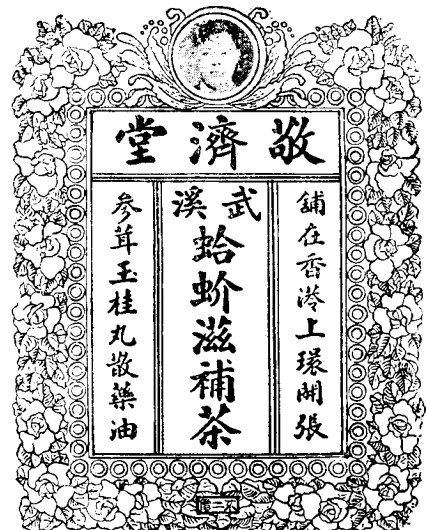 敬濟堂
舖在香港上環開張
武溪
蛤蚧滋補茶
參茸玉桂丸散藥油